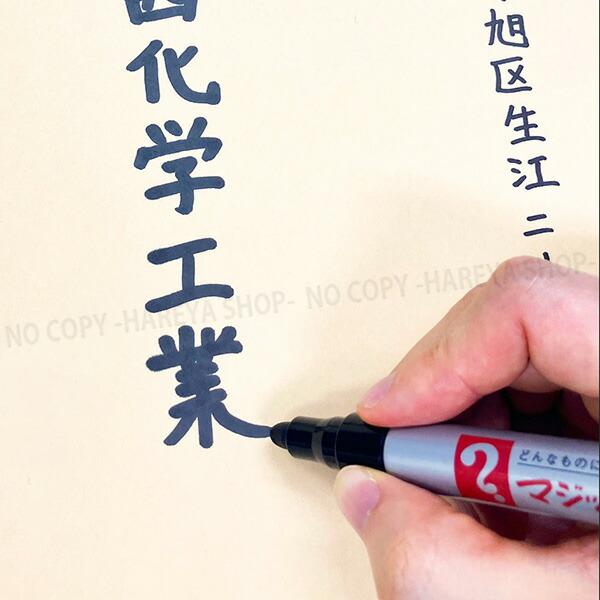 旭区生江二
化学工業
NO COPY -HAREYA SHOP- NO COPY -HAREYA SHOP-
どんなものに
マジッ